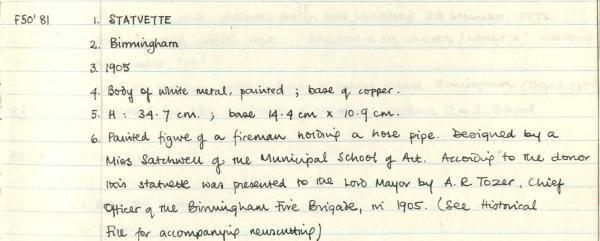 F50'81 1. STATVETTE
2. Birmingham
3. 1905
4. Body of white metal, painted ; base of copper.
5. H : 34.7 cm. ; base 14.4 cm x 10.9 cm.
6. Painted figure of a fireman holding a hose pipe. Designed by a
Miss Satchwell of the Municipal School of Art. According to the donor
this statvette was presented to the Lord Mayor by A.R. Tozer, Chief
Officer of the Birmingham Fire Brigade, in 1905. (See Historical
File for accompanying newscutting)